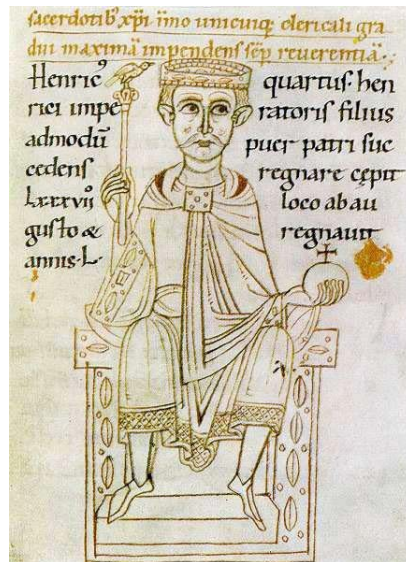 sacerdotib᷒ xp̄i īmo unicuiq; clericali gra
dui maximā impendens sēp reuerentiā.
Henric᷒ quartus· hen
rici impe ratoris filius
admodū puer patri suc
cedens regnare cępit
lxxxvii͛ loco ab au
gusto & regnauit
annis·L·